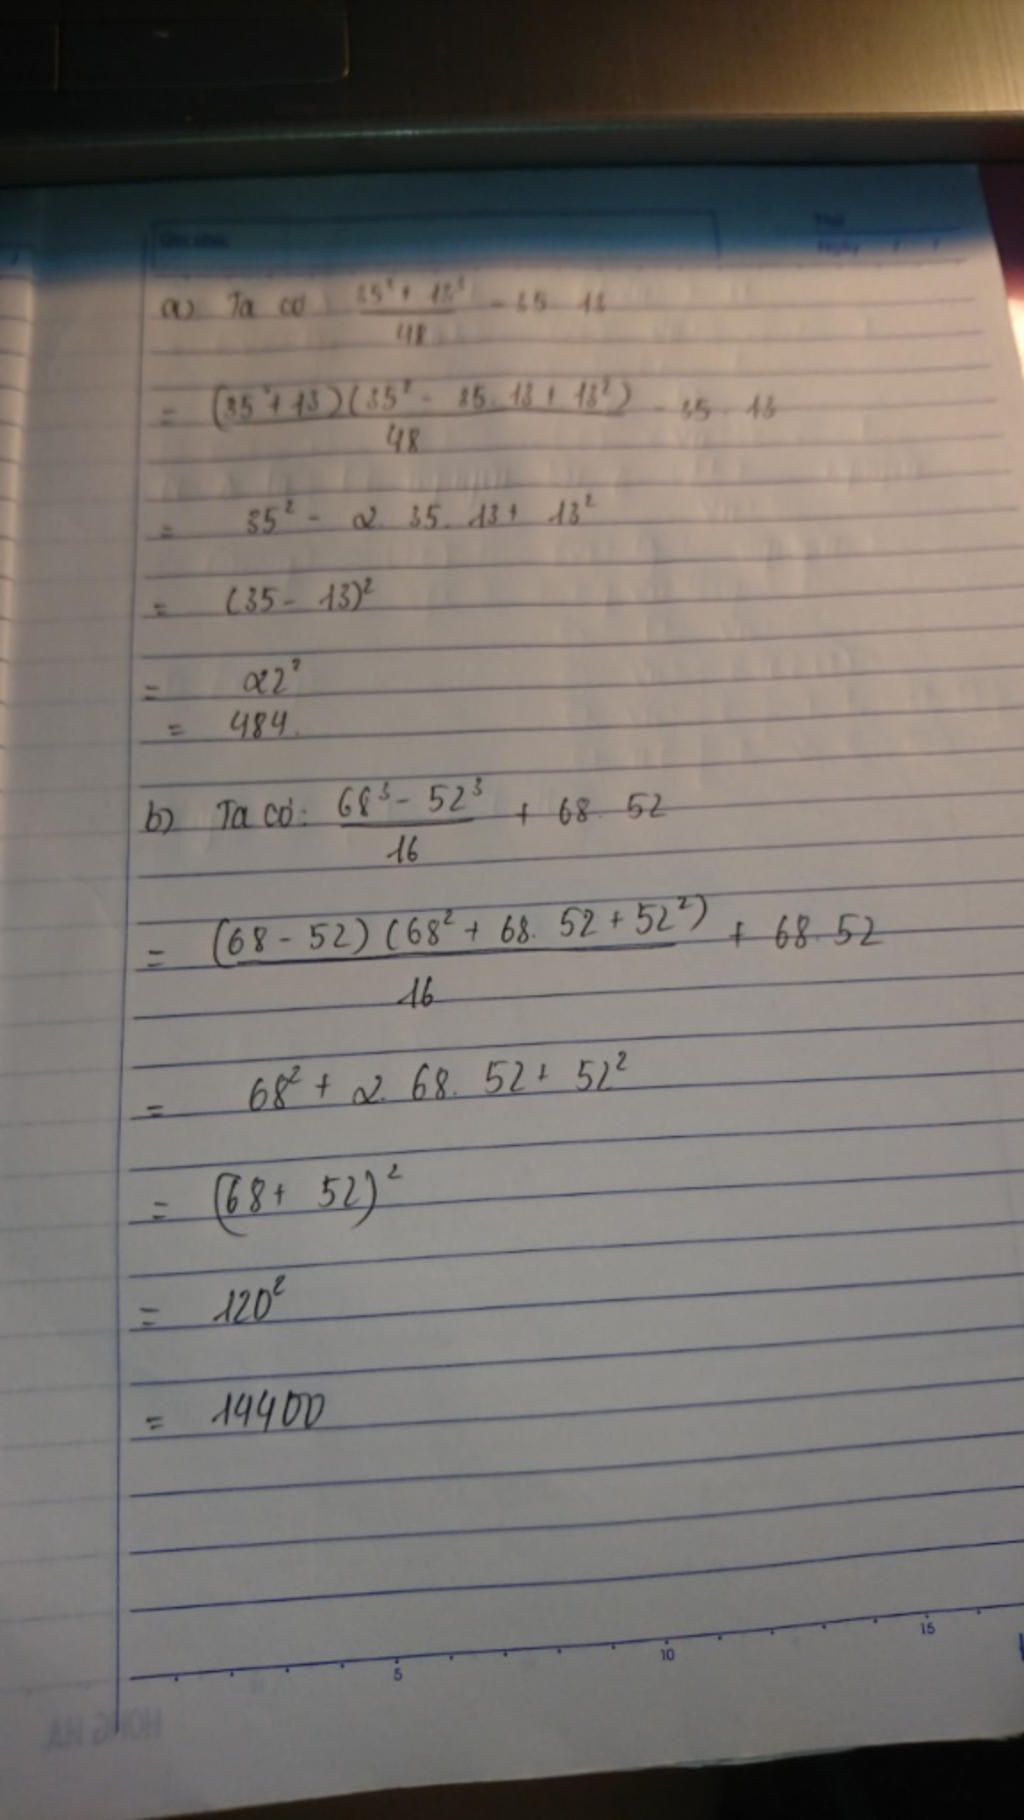 a) Ta có: (35³ + 13³)/48 - 35. 13
= (35 + 13)(35² - 35. 13 + 13²)/48 - 35. 13
= 35² - 2. 35. 13 + 13²
= (35 - 13)²
= 22²
= 484.
b) Ta có: (68³ - 52³)/16 + 68. 52
= (68 - 52)(68² + 68. 52 + 52²)/16 + 68. 52
= 68² + 2. 68. 52 + 52²
= (68 + 52)²
= 120²
= 14400
5 10 15
HONG HA